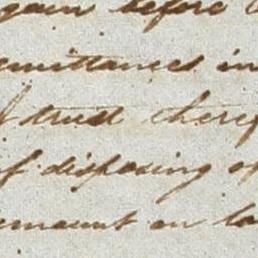 gain before
emittances in
I trust theref
of disposing of
emaunt on lo